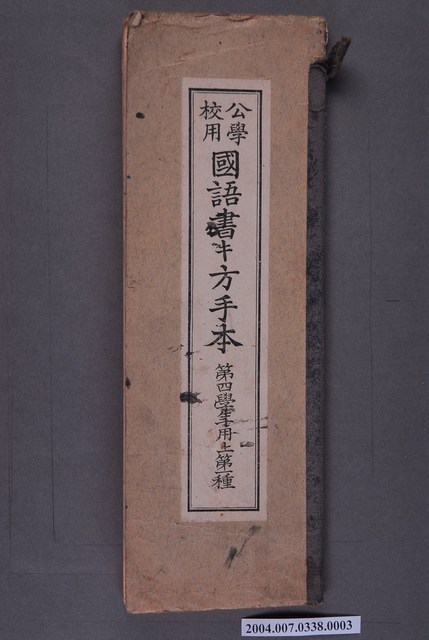 公學校用
國語書キ方手本
第四學年用上第一種
2004.007.0338.0003